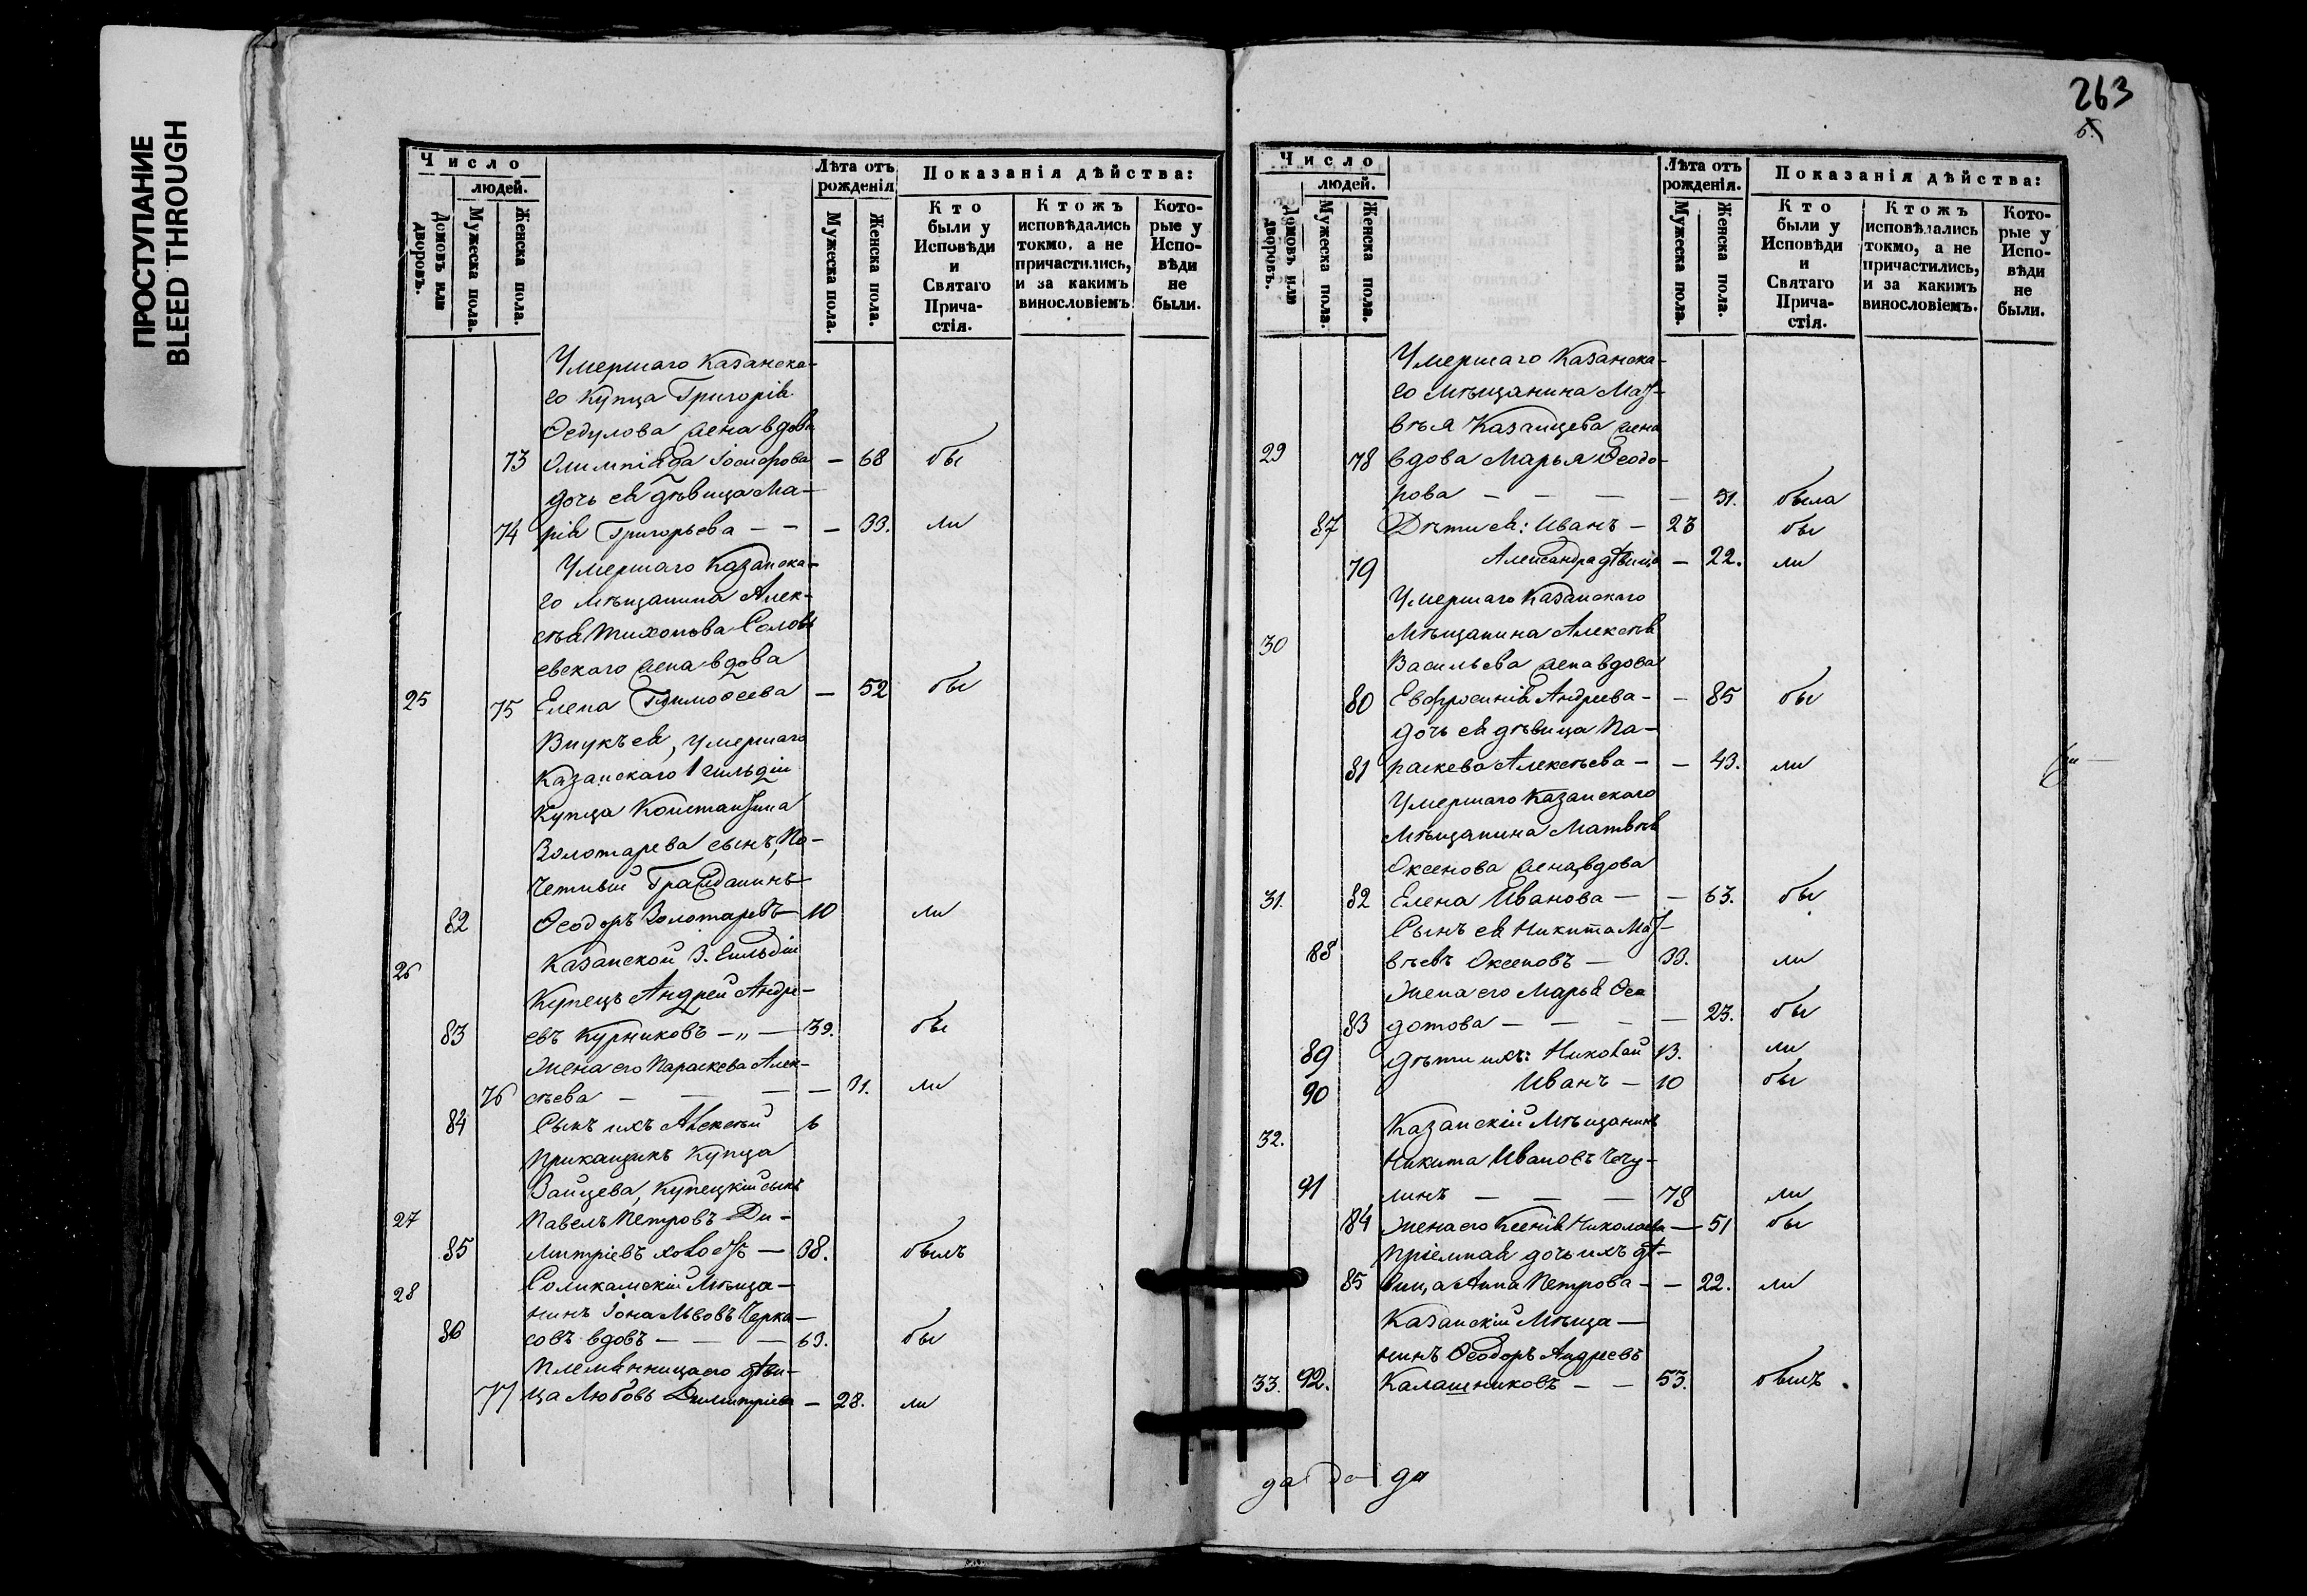 ПРОСТУПАНИЕ
BLEED THROUGH
263
Число
людей.
Домовъ или дворовъ.
Мужеска пола.
Женска пола.
Лѣта отъ рожденія
Мужеска пола.
Женска пола.
Показанія дѣйства:
Кто были у Исповѣди и Святаго Причастія.
Ктожъ исповѣдались токмо, а не причастились, и за какимъ винословіемъ
Которые у Исповѣди не были.
Умершаго Казанска-
го Купца Григорія
Ѳедулова жена вдова
73 Олимпіада Іосифова — 68 бы
дочь ея дѣвица Ма-
74 рія Григорьева — — — 33. ли
Умершаго Казанска-
го мѣщанина Алек-
сѣя Тихонова Соловь
евскаго жена вдова
25 75 Елена Тимоѳеева — 52 бы
Внукъ ея, умершаго
Казанскаго 1 гильдіи
Купца Константина
Золотарева сынъ, По-
четный Гражданинъ
82 Ѳеодоръ Золотаревъ — 10 ли
26 Казанской 3. Гильдіи
Купецъ Андрей Андре-
83 евъ Курниковъ — „ — 39. бы
жена его Параскева Алек-
76 сѣева — — — — 31. ли
84 Сынъ ихъ Алексѣй 6
Прикащикъ Купца
Зайцева, Купецкій сынъ
27 Павелъ Петровъ Ди-
85 митріевъ холостъ — 38. былъ
28 Соликамскій Мѣща-
нинъ Іона Львовъ Черка-
86 совъ вдовъ — — — 63. бы
Племянница его дѣви-
77 ца Любовь Димитріева — 28. ли
Число
людей.
Домовъ или дворовъ.
Мужеска пола.
Женска пола.
Лѣта отъ рожденія.
Мужеска пола.
Женска пола.
Показанія дѣйства:
Кто были у Исповѣди и Святаго Причастія.
Ктожъ исповѣдались токмо, а не причастились, и за какимъ винословіемъ.
Которые у Исповѣди не были.
Умершаго Казанска-
го Мѣщанина Мат-
вѣя Казанцева жена
29 78 вдова Марья Ѳеодо-
рова — — — — 51. была
87 Дѣти ея: Иванъ — 23 бы
79 Александра дѣвица — 22. ли
Умершаго Казанскаго
30 Мѣщанина Алексѣя
Васильева жена вдова
80 Евфросинія Андреева — — 85 бы
дочь ея дѣвица Па-
81 раскева Алексѣева — — 43. ли
Умершаго Казанскаго
Мѣщанина Матвѣя
Оксенова жена, вдова
31. 82 Елена Иванова — — 63. бы
Сынъ ея Никита Мат-
88 вѣевъ Оксеновъ — 33. ли
жена его Марья Ѳео
83 дотова — — — — 23. бы
89 дѣти ихъ: Николай 13. ли
90 Иванъ — 10 бы
32. Казанскій Мѣщанинъ
Никита Ивановъ Чечу-
91 линъ — — — 78 ли
84 жена его Ксенія Николаева — 51 бы
Пріемная дочь ихъ дѣ-
85 вица Анна Петрова — — 22. ли
Казанскій Мѣща-
нинъ Ѳеодоръ Андреевъ
33. 92. Калашниковъ — — 53. былъ.
да да да